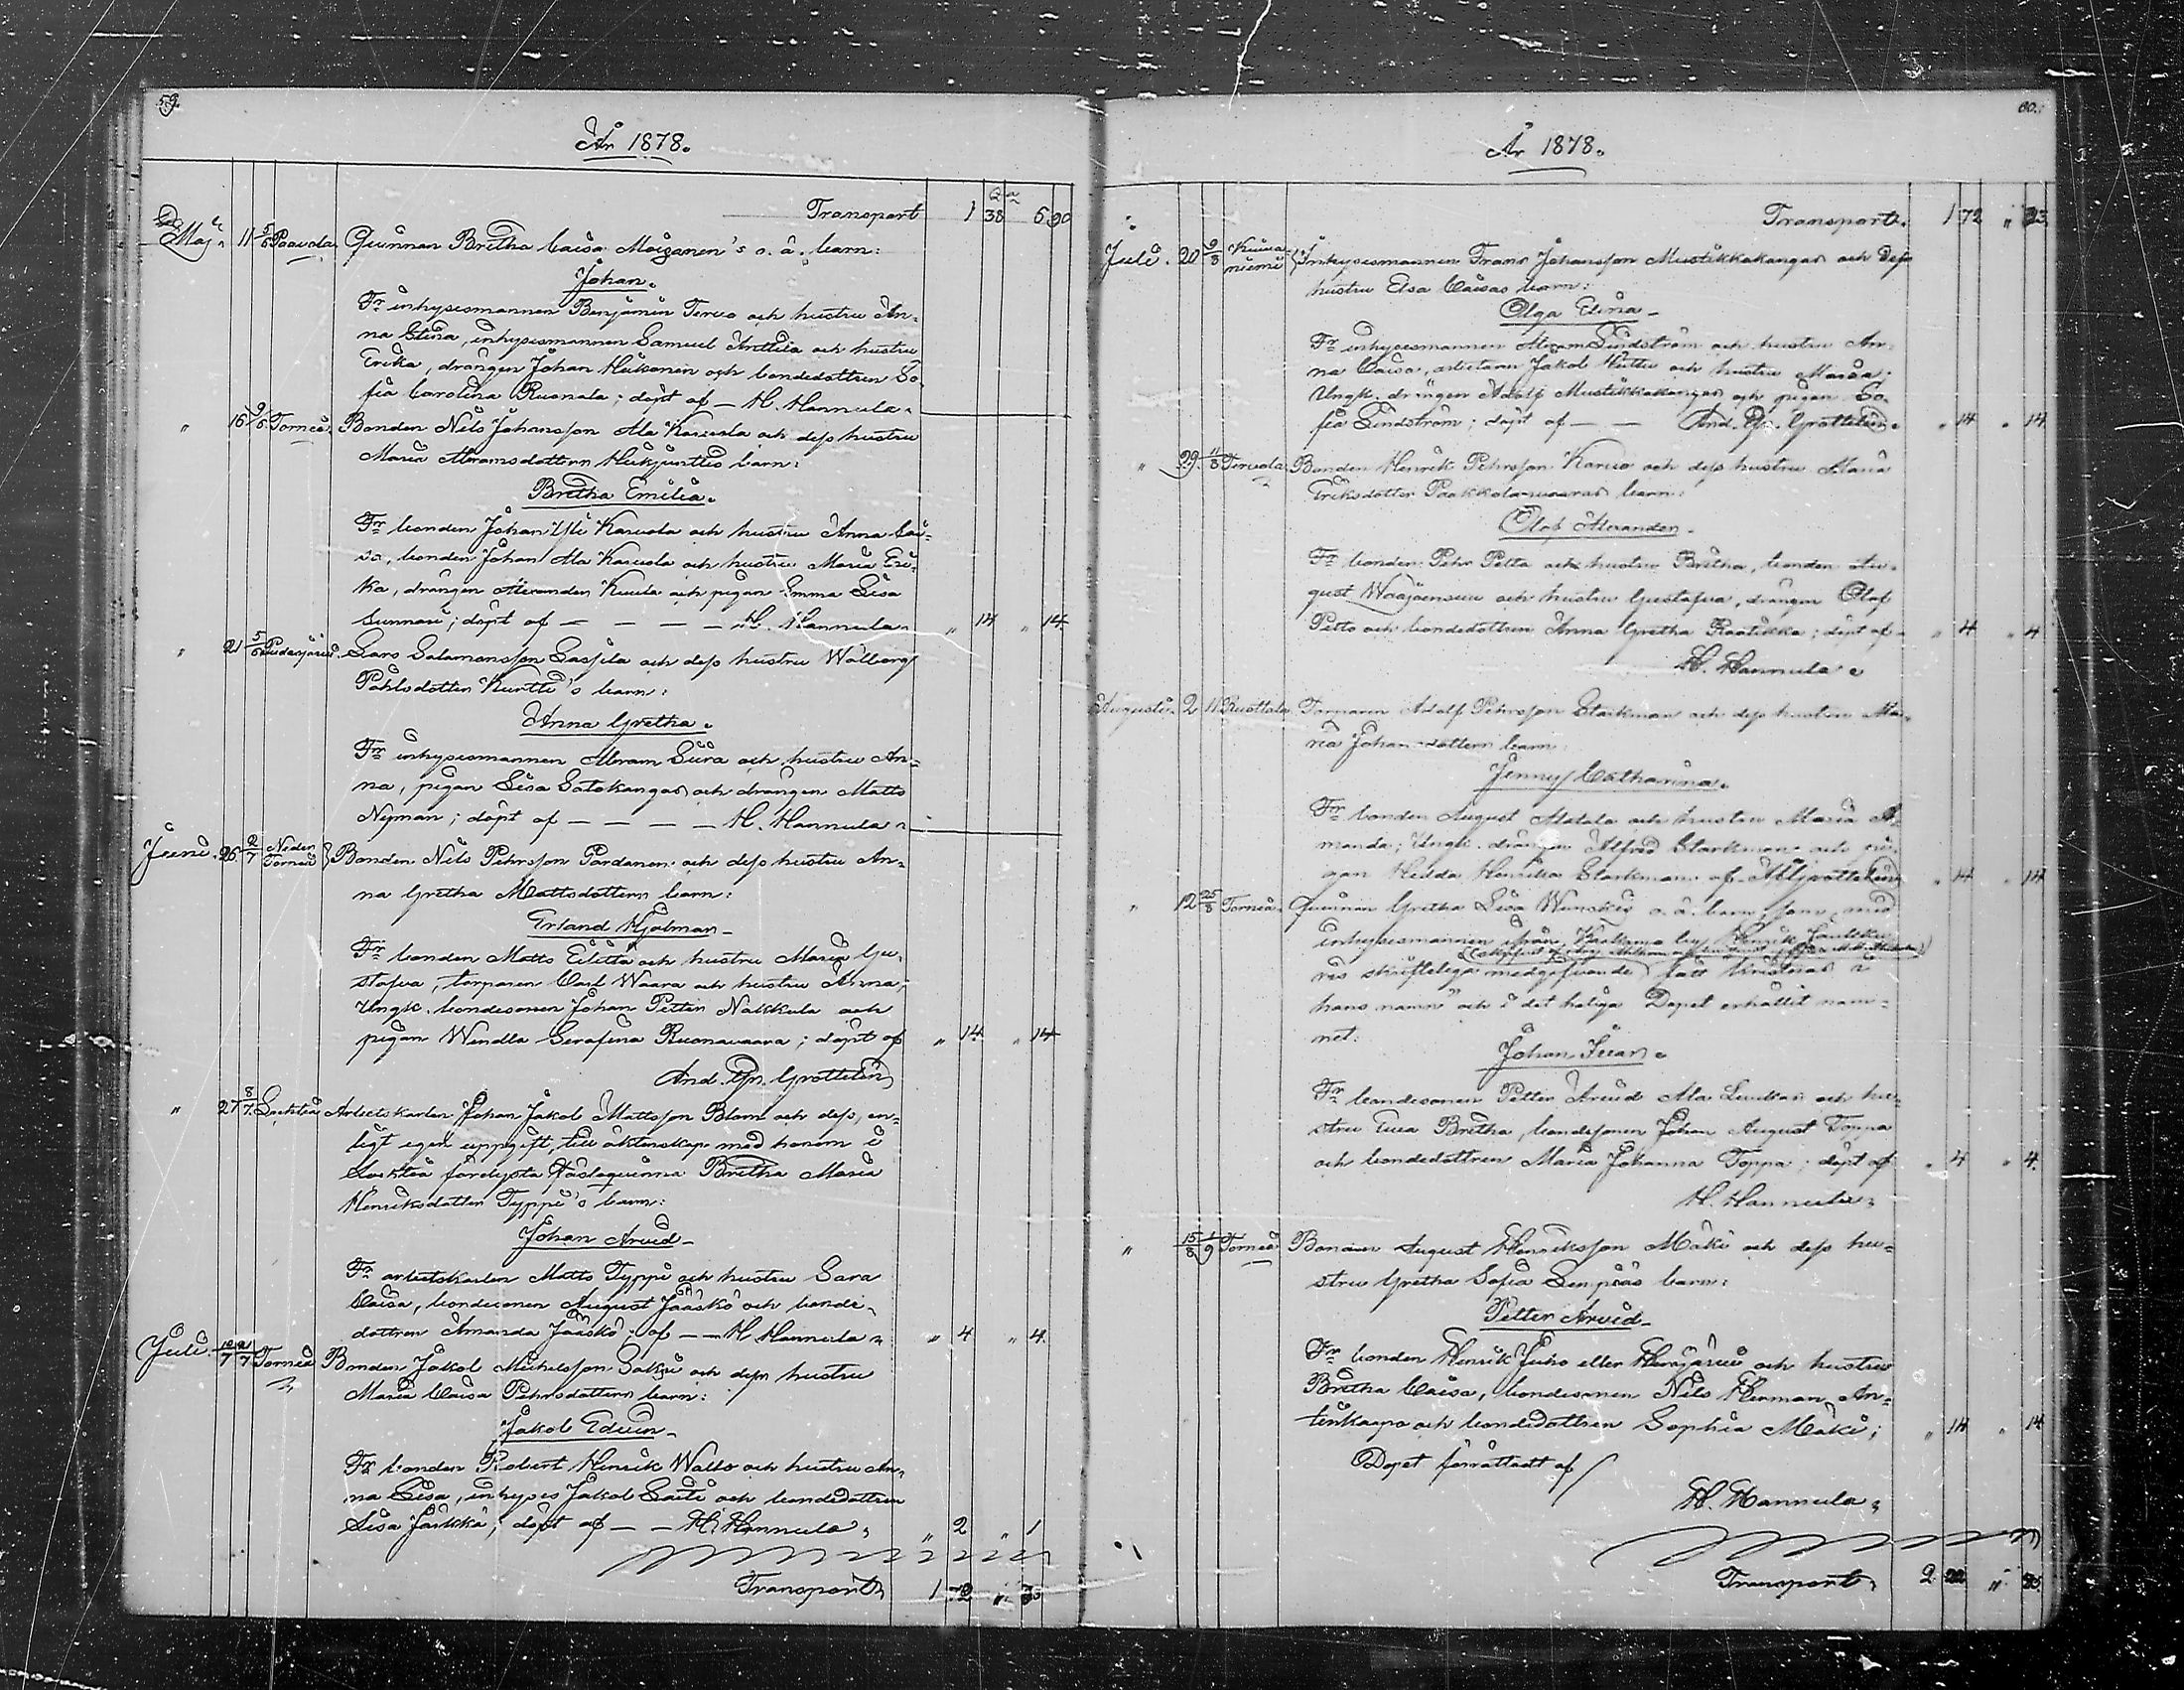 59.
År 1878.
Transport 1 38
Maj. 11 5/6 Paavola. Qvinnan Bretha Caisa Moizanen's o. ä. barn:
Johan.
Fr inhysesmannen Benjamin Tervo och hustru An-
na Stina, inhysesmannen Samuel Anttila och hustru
Erika, drängen Johan Heikonen och bondedottren So-
fia Carolina Ruonala; döpt af — H. Hannula.
" 16 9/6 Torneå. Bonden Nils Johansson Ala Karvola och dess hustru
Maria Abramsdotters barn:
Bretha Emilia.
Fr bonden Johan Yli Karvola och hustru Anna Cai-
sa, bonden Johan Ala Karvola och hustru Maria Eri-
ka, drängen Alexander Kuula och pigan Emma Lisa
Sunnari; döpt af — — — — H. Hannula. " 14 " 14.
" 21 5/6 Pudasjärvi. Lars Salamonsson Lassila och dess hustru Walborg
Påhlsdotter Kurtti's barn:
Anna Gretha.
Fr inhysesmannen Abram Siira och hustru An-
na, pigan Lisa Satokangas och drängen Matts
Nyman; döpt af — — — — H. Hannula.
Juni. 26 2/7 Neder Torneå Bonden Nils Pehrsson Pardanen och dess hustru An-
na Gretha Mattsdotters barn:
Erland Hjalmar
Fr bonden Matts Eilitta och hustru Maria Gu-
stafva, torparen Carl Waara och hustru Anna,
Ungk. bondesonen Johan Petter Nakkula och
pigan Wendla Serafina Ruonavaara; döpt af " 14. " 14
And. Gr. Grotteliu
" 27 8/7. Lochteå Arbetskarlen Johan Jakob Mattsson Blom och dess, en-
ligt egen uppgift, till äktenskap med honom i
Lochteå förelysta fästeqvinna Bretha Maria
Henriksdotter Typpi's barn:
Johan Arvid
Fr arbetskarlen Matts Typpi och hustru Sara
Caisa, bondesonen August Jääskö och bonde-
dottren Amanda Jääskö; af — — H. Hannula. " 4 " 4.
Juli. Torneå Bonden Jakob Michelsson Sakri och dess hustru
Maria Caisa Pehrsdotters barn:
Jakob Edvin
Fr bonden Robert Henrik Wallo och hustru An-
na Lisa, inhyses Jakob Laiti och bondedottren
Lisa Jarkko; döpt af — — H. Hannula. " 2 " 1
Transport 1 72 "
60.
År 1878.
Transport. 1 72 "
Juli. 20 9/8 Kuivaniemi Inhysesmannen Frans Johansson Mustikkakangas och dess
hustru Elsa Caisas barn:
Olga Elina
Fr inhysesmannen Abram Lindström och hustru An-
na Caisa, arbetaren Jakob Huttu och hustru Maria;
Ungk. drängen Adolf Mustikkakangas och pigan So-
fia Lindström; döpt af — — And. Gr. Grotteliu. " 14 " 14
" 29. 11/8 Tervola. Bonden Henrik Pehrsson Karvo och dess hustru Maria
Eriksdotter Paakkolanvaaras barn:
Olof Alexander
Fr bonden Pehr Petta och hustru Bretha, bonden Au-
gust Waajoensuu och hustru Gustafva, drängen Olof
Petto och bondedottren Anna Gretha Raatikka; döpt af " 4 " 4
H. Hannula.
Augusti. 2 11 Ruottala Torparen Adolf Pehrsson Starkman och dess hustru Ma-
ria Johansdotters barn:
Jenny Catharina.
Fr bonden August Matala och hustru Maria A-
manda, Ungk. drängen Alfred Starkman och pi-
gan Hedda Henrika Starkman af Grotteliu " 14 " 14
" 12 25/8 Torneå. Qvinnan Gretha Lisa o. ä. barn, som med
inhysesmannen ifrån by Henrik
res skriftliga medgifvande fått kristnas i
hans namn och i det heliga Dopet erhållit nam-
net:
Johan Ivar.
Fr bondesonen Petter Arvid Ala Luukas och hu-
stru Eva Bretha, bondesonen Johan August Toppa
och bondedottren Maria Johanna Toppa; döpt af " 4 " 4.
H. Hannula.
" 15/8 1/9 Torneå Bonden August Henriksson Mäki och dess hu-
stru Gretha Sofia Lempiäs barn:
Petter Arvid
Fr bonden Henrik Juho eller Herajärvi och hustru
Bretha Caisa, bondesonen Nils Herman An-
tinkaapo och bondedottren Sophia Mäki; " 14 " 14
Dopet förrättadt af
H. Hannula.
Transport. 2 22 "